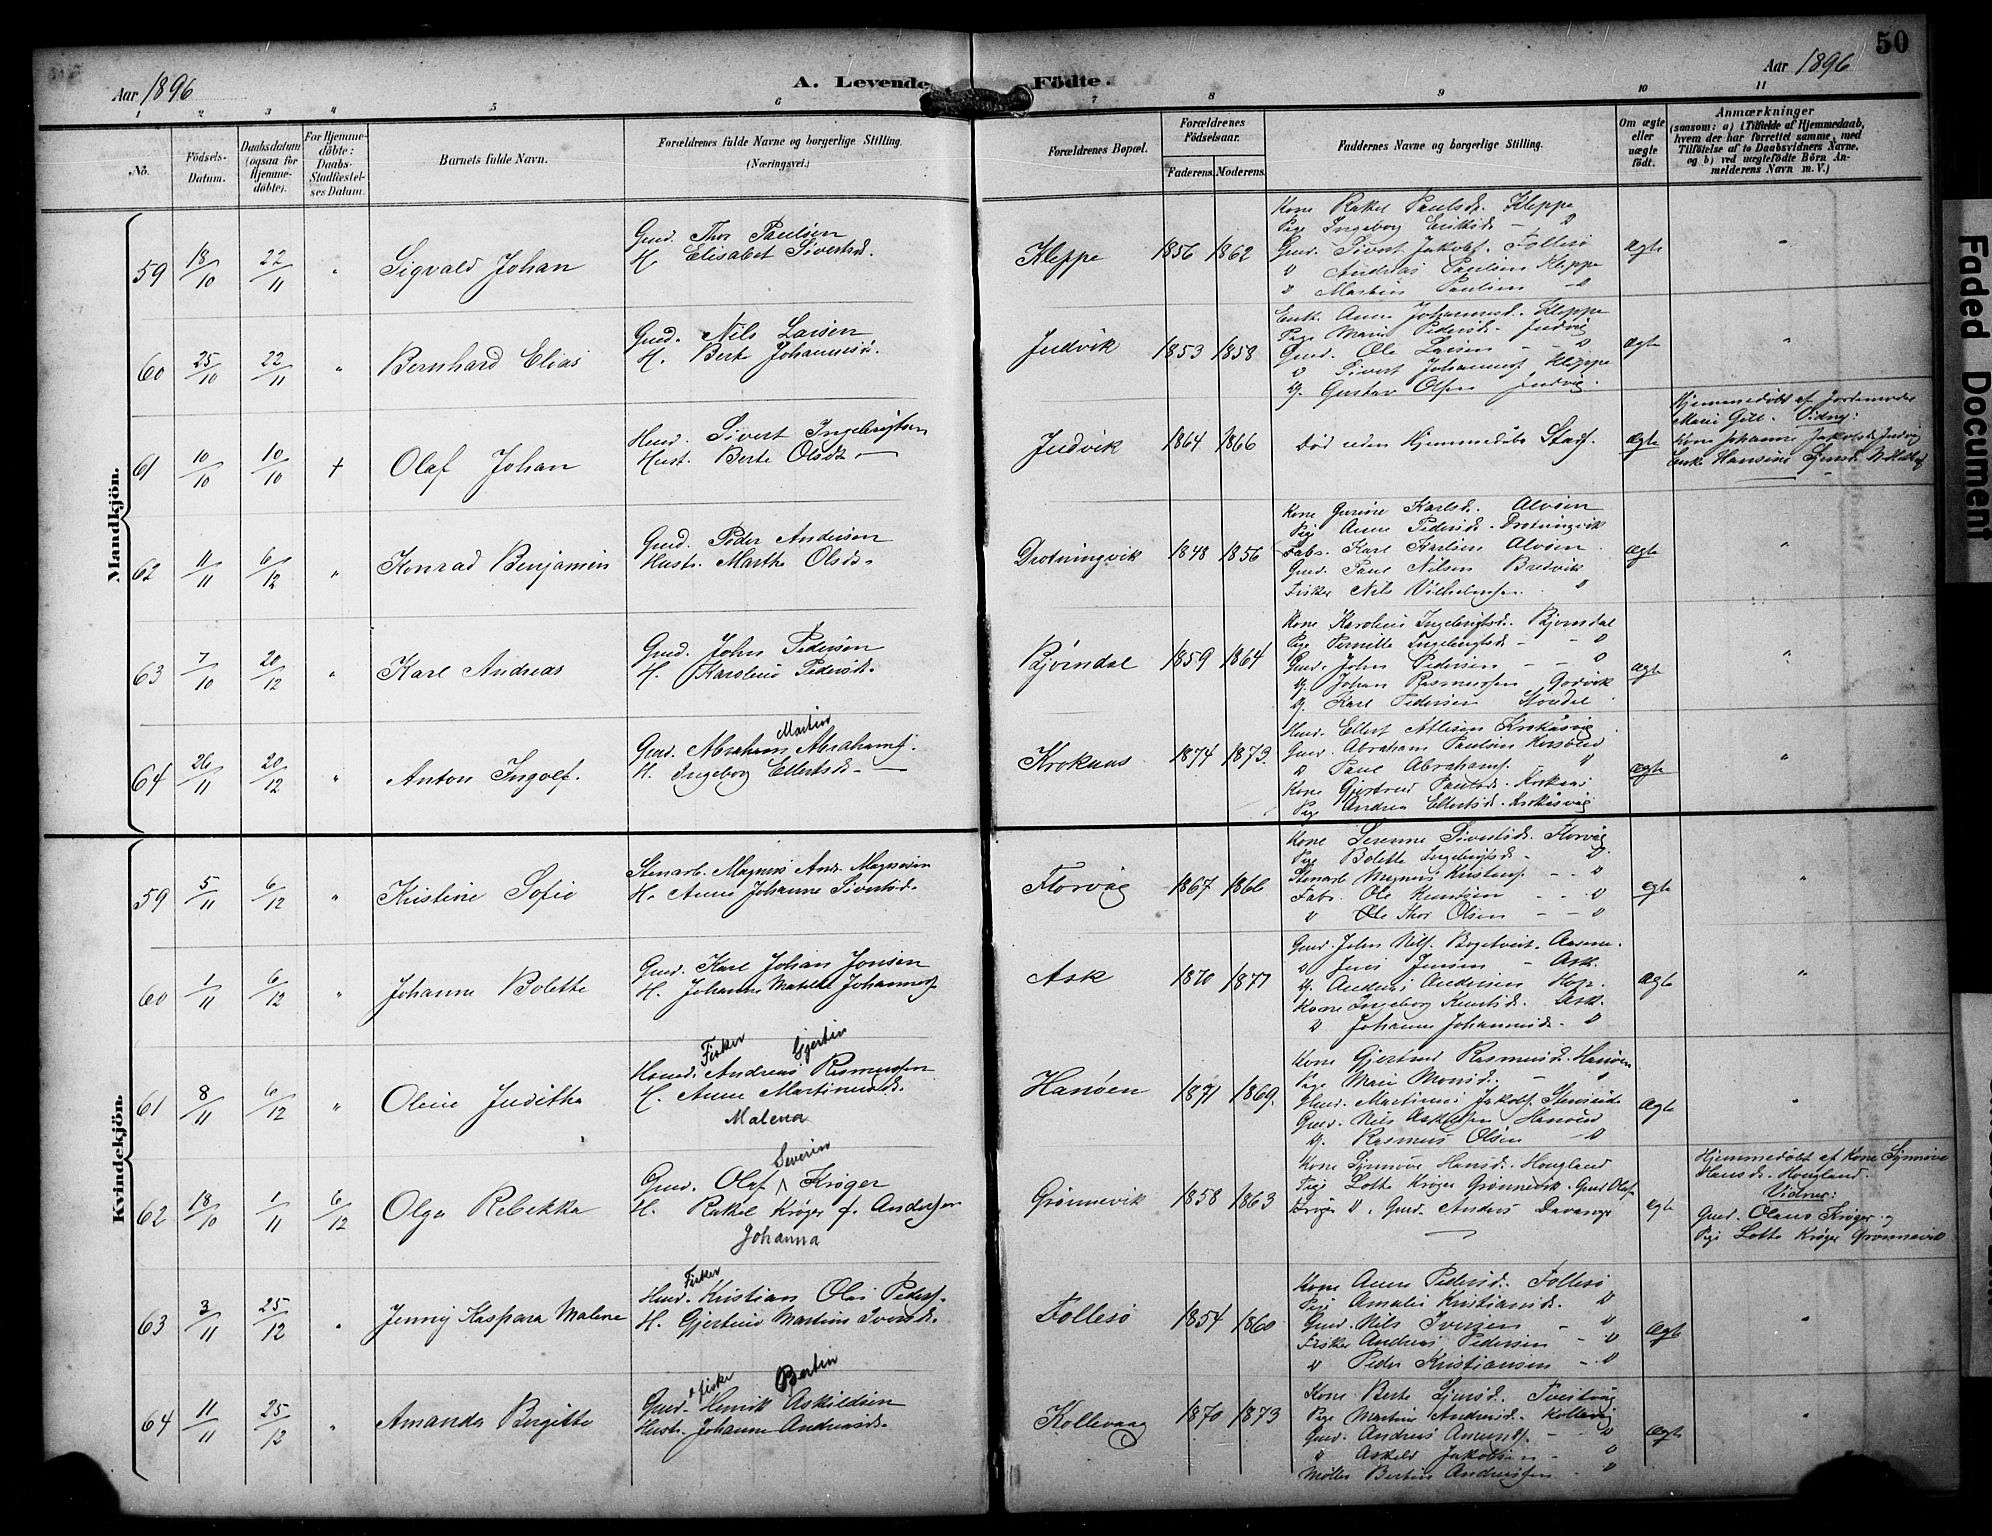 50
Aar 1896
A. Levende Födte.
Aar 1896
1 2 3 4 5 6 7 8 9 10 11
No.
Födsels-
Datum.
Daabsdatum
(ogsaa for
Hjemme-
döbte).
For Hjemme-
döbte:
Daabs-
Stadfæstel-
ses Datum.
Barnets fulde Navn.
Forældrenes fulde Navne og borgerlige Stilling.
(Næringsvei.)
Forældrenes Bopæl.
Forældrenes
Födselsaar.
Faderens. Moderens.
Faddernes Navne og borgerlige Stilling.
Om ægte
eller
uægte
födt.
Anmærkninger
(saasom: a) i Tilfælde af Hjemmedaab,
hvem der har forrettet samme, med
Tilföielse af to Daabsvidners Navne,
og b) ved uægtefödte Börn An-
melderens Navn m. V.)
Mandkjön.
59 18/10 22/11 " Sigvald Johan
Gmd. Thor Paulsen
H. Elisabet Sivertsd.
Kleppe 1856 1862
Kone Rakel Paulsd. Kleppe
Pige Ingeborg Eriksd. - "
Gmd. Sivert Jakobs. Follesø
" Andreas Paulsen Kleppe
" Martin Paulsen - "
Ægte "
60 25/10 22/11 " Bernhard Elias
Gmd. Nils Larsen
H. Berte Johannesd.
Judvik 1853 1858
Enke Anna Johannesd. Kleppe
Pige Marie Pedersd. Judvig
Gmd. Ole Larsen - "
" Sivert Johannes. Kleppe
Ug. Gustav Olsen Judvig.
Ægte "
61 10/10 10/10 + Olaf Johan
Hmd. Sivert Ingebrigtsen
Hust. Berte Olsdr. —
Judvik 1864 1866
Død uden Hjemmedaabs Stadf.
Ægte
Hjemmedøbt af Jordemoder
Marie Gill. Vidner:
Kone Johanne Jakobsd. Judvig
Enke Hansine
62 11/11 6/12 " Konrad Benjamin
Gmd. Peder Andersen
Hustr. Marthe Olsdr.
Drotningvik 1848 1856
Kone Gurine Karlsd. Alvøen
Pige Anne Pedersd. Drotningvik
Fabr. Karl Karlsen Alvøen
Gmd. Paul Nilsen Bredvik
Fisker Nils Vilhelmsen "
Ægte "
63 7/10 20/12 " Karl Andreas
Gmd. John Pedersen
H. Karoline Pedersd.
Bjørndal 1859 1864
Kone Karoline Ingebrigtsd. Bjørndal
Pige Pernille Ingebrigtsd. - - "
Gmd. John Pedersen - - "
Ug. Johan Rasmussen Godvik
Ug. Karl Pedersen
Ægte "
64 26/11 20/12 " Anton Ingolf.
Martin
Gmd. Abraham Abrahams.
H. Ingeborg Ellertsd. —
Kroknæs 1874 1873.
Hmd. Ellert Atlesen Krokåsvåg
Gmd. Abraham Paulsen
" Paul Abrahams. "
Kone Gjertrud Paulsd. Kroknæs
Pige Andrea Ellertsd. Krokåsvåg
Ægte "
Kvindekjön.
59 5/11 6/12 " Kristine Sofie
Stenarb. Magnus And. Magnesen
H. Anne Johanne Sivertsd.
Florvåg 1867 1866
Kone Serenne Sivertsd. Florvåg
Pige Bolette Ingebrigtsd. - "
Stenarb. Magnus Kristens. - - "
Fabr. Ole Knudsen - - "
" Ole Thor Olsen - - "
Ægte "
60 1/11 6/12 " Johanne Bolette
Gmd. Karl Johan Jonsen
H. Johanne Matilde Johannesd.
Ask 1870 1877
Gmd. John Nils. Bogetveit. Aasene.
" Jens Jensen - Ask.
Ug. Andreas Andersen Hop.
Kone Ingeborg Knutsd. Ask.
" Johanne Johannesd. "
Ægte "
61 8/11 6/12 " Oline Juditha
Fisker Gjertin
Hmd. Andreas Rasmussen
H. Anne Martinusd.
Malena
Hanøen 1871 1869.
Kone Gjertrud Rasmusd. Hanøen
Pige Marie Monsd. - "
Hmd. Martinus Jakobs. Stenseide
Gmd. Nils Askildsen Hanøen
Ug. Rasmus Olsen - "
Ægte "
62 18/10 1/11 6/12 Olga Rebekka
Severin
Gmd. Olaf Krøger
H. Rakel Krøger f. Andersen
Johanna
Grønnevik 1858 1863
Kone Synnøve Hansd. Hougland
Pige Lotte Krøger Grønnevik. Gmd. Olaf
Krøger ". Gmd. Anders Davanger
Ægte
Hjemmedøbt af Kone Synnøve
Hansd. Hougland.
Vidner:
Gmd. Olaus Krøger og
Pige Lotte Krøger Grønnevik
63 3/11 25/12 " Jenny Kaspara Malene
Fisker
Hmd. Kristian Olai Peders.
H. Gjertine Martine Iversd.
Follesø 1854 1860
Kone Anna Pedersd. Follesø
Pige Amalie Kristiansd. "
Gmd. Nils Iversen - "
Fisker Andreas Pedersen - "
" Peder Kristiansen - "
Ægte "
64 11/11 25/12 " Amanda Bergitte
Fisker Bertin
Gmd. Henrik Askildsen
Hustr. Johanne Andersd.
Kollevaag 1870 1873
Kone Berte Sjursd. Tveitvåg
Pige Martine Andersd. Kollevåg
Gmd. Andreas Amunds. - "
" Askild Jakobsen - "
Møller Bertin Andreassen - "
Ægte "
Faded Document